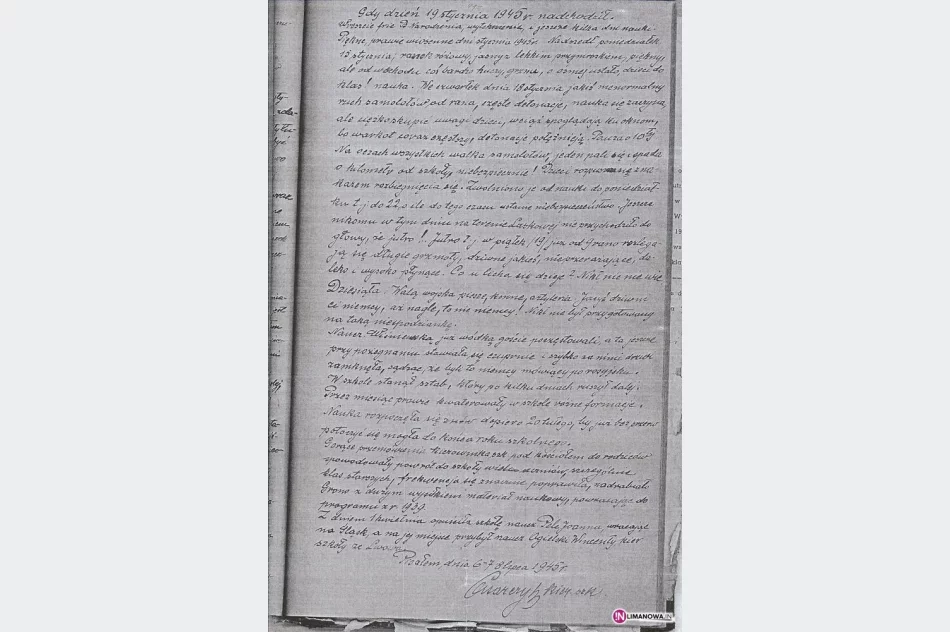 Gdy dzień 19 stycznia 1945 r. nadchodził.
ferie B. Narodzenia, wytchnienie, i jeszcze kilka dni nauki.
Piękne, prawie wiosenne dni stycznia 1945 r. Nadszedł poniedziałek
15 stycznia, ranek różowy, jasny z lekkim przymrozkiem, piękny,
ale od wschodu coś bardzo huczy, grzmi, o ósmej ustały, dzieci do
klas! nauka. We czwartek dnia 18 stycznia jakiś nienormalny
ruch samolotów od rana, częste detonacje, nauka się zaczyna,
ale ciężko skupić uwagę dzieci, wciąż spoglądają ku oknom,
bo warkot coraz częstszy, detonacje potężnieją. 10
Na oczach wszystkich walka samolotów, jeden pali się i spada
o kilometr od szkoły, niebezpiecznie! Dzieci się z na-
kazem rozbiegnięcia się. Zwolniono je od nauki do poniedział-
ku t.j. do 22, o ile do tego czasu ustanie niebezpieczeństwo. Jeszcze
nikomu w tym dniu na terenie Laskowej nie przychodziło do
głowy, że jutro! Jutro t.j. w piątek, 19 już od rana rozlega-
ją się długie grzmoty, dziwne jakieś, nieprzerażające, da-
leko i wysoko płynące. Co u licha się dzieje? Nikt nic nie wie
Dziesiąta. Walą wojska piesze, konne, artyleria. Jacyś dziwni
ci niemcy, aż nagle, to nie niemcy! Nikt nie był przygotowany
na taką niespodziankę.
Naucz. już wódką goście poczęstowali, a ta jeszcze
przy pożegnaniu stawiała się czupurnie i szybko za nimi drzwi
zamknęła, sądząc, że byli to niemcy mówiący po rosyjsku.
W szkole stanął sztab, który po kilku dniach ruszył dalej.
Przez miesiąc prawie kwaterowały w szkole różne formacje.
Nauka rozpoczęła się znów dopiero 20 lutego, by już bez przerw
potoczyć się mogła do końca roku szkolnego.
Gorące przemówienia kierownika szk. pod kościołem do rodziców
spowodowały powrót do szkoły wielu uczniów, szczególnie
klas starszych, frekwencja się znacznie poprawiła, zadrabiało
Grono z dużym wysiłkiem materiał naukowy, powracając do
programu z r. 1939.
Z dniem 1 kwietnia opuściła szkołę naucz. Joanna, wracając
na Śląsk, a na jej miejsce przybył naucz. Wincenty kier.
szkoły ze Lwowa
dnia 6-7 lipca 1945 r.
kier. szk.
LIMANOWA.IN